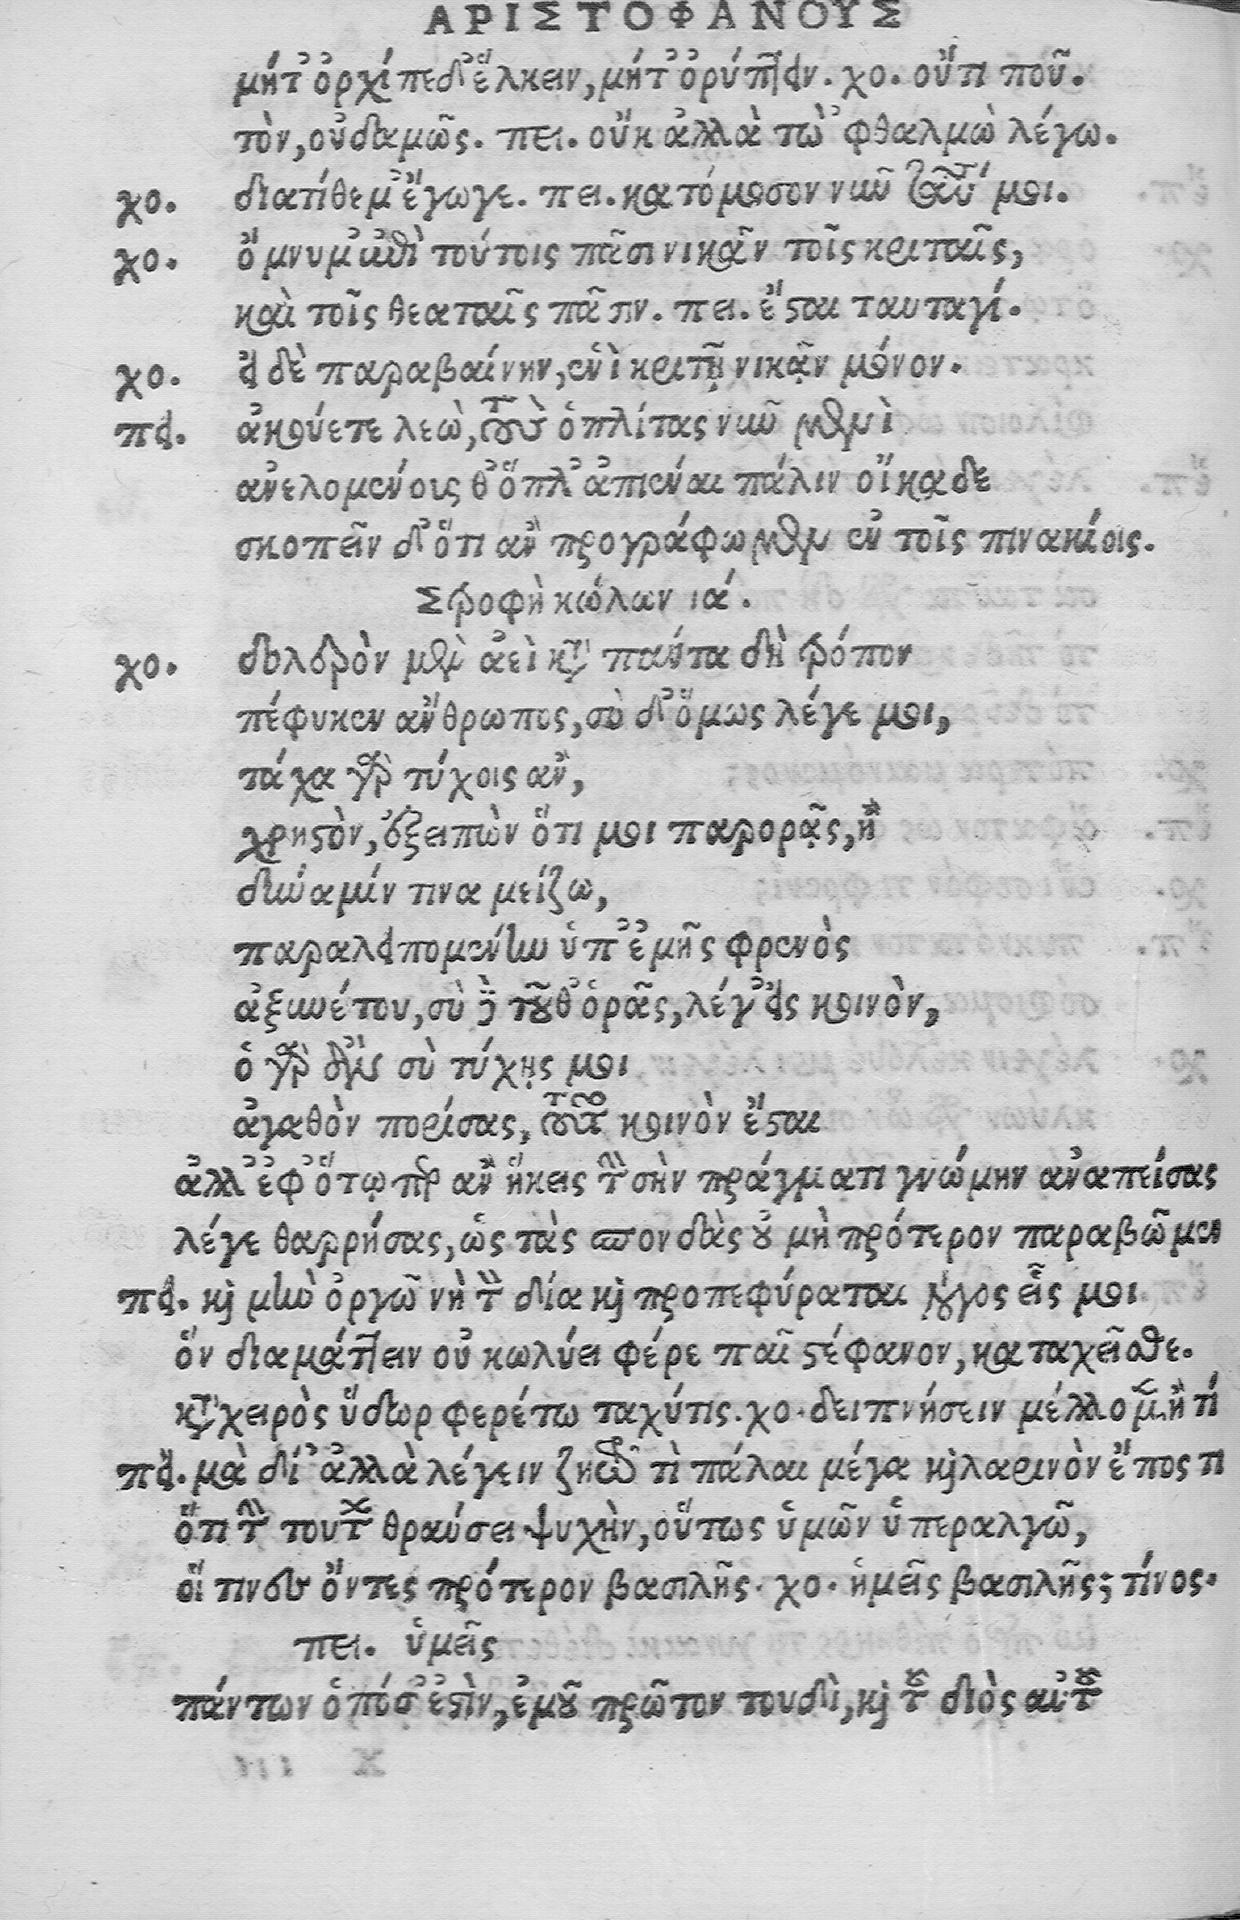 ΑΡΙΣΤΟΦΑΝΟΥΣ
μήτ' ὀρχίπεδ' ἕλκειν, μήτ' ὀρύττειν. χο. οὔτι που.
τὸν, οὐδαμῶς. πει. οὔκ ἀλλὰ τὼ 'φθαλμὼ λέγω.
χο. διατίθεμ' ἔγωγε. πει. κατόμοσον νυῦ ταῦτά μοι.
χο. ὄμνυμ' ἐπὶ τούτοις πᾶσι νικᾶν τοῖς κριταῖς,
καὶ τοῖς θεαταῖς πᾶσιν. πει. ἔσται ταυταγί.
χο. εἰ δὲ παραβαίνην, ἑνὶ κριτῇ νικᾷν μόνον.
πει. ἀκούετε λεὼ, τοὺς ὁπλίτας νυῦ μὲν μὶ
ἀνελομένοις θ' ὅπλ' ἀπιέναι πάλιν οἴκαδε
σκοπεῖν δ' ὅτι ἂν προγράφωμεν ἐν τοῖς πινακίοις.
Στροφὴ κώλων ια'.
χο. δολερὸν μὲν ἀεὶ κατὰ πάντα δὴ τρόπον
πέφυκεν ἄνθρωπος, σὺ δ' ὅμως λέγε μοι,
τάχα γὰρ τύχοις ἂν,
χρηστὸν, ἐξειπὼν ὅτι μοι παρορᾷς, ἢ
δύναμίν τινα μείζω,
παραλειπομένην ὑπ' ἐμῆς φρενὸς
ἀξυνέτου, σὺ δὲ τοῦθ' ὁρᾷς, λέγ' εἰς κοινὸν,
ὁ γὰρ ἂν σὺ τύχῃς μοι
ἀγαθὸν πορίσας, τοῦτο κοινὸν ἔσται
ἀλλ' ἐφ' ὅτῳ περ ἂν ἥκεις τὴν σὴν πράγματι γνώμην ἀναπείσας
λέγε θαρρήσας, ὡς τὰς σπονδὰς οὐ μὴ πρότερον παραβῶμεν
πει. καὶ μὴν ὀργῶ νὴ τὸν δία καὶ προπεφύραται λόγος εἷς μοι
ὃν διαμάττειν οὐ κωλύει φέρε παῖ στέφανον, καταχεῖσθε.
κατὰ χειρὸς ὕδωρ φερέτω ταχύτις. χο. δειπνήσειν μέλλομεν ἢ τί
πει. μὰ δί' ἀλλὰ λέγειν ζητῶ τὶ πάλαι μέγα καὶ λαρινὸν ἔπος τι
ὅτι τὴν τούτων θραύσει ψυχὴν, οὕτως ὑμῶν ὑπεραλγῶ,
οἵ τινες ὄντες πρότερον βασιλῆς. χο. ἡμεῖς βασιλῆς; τίνος.
πει. ὑμεῖς
πάντων ὁπόσ' ἐστὶν, ἐμοῦ πρῶτον τουδὶ, καὶ τοῦ διὸς αὐτοῦ